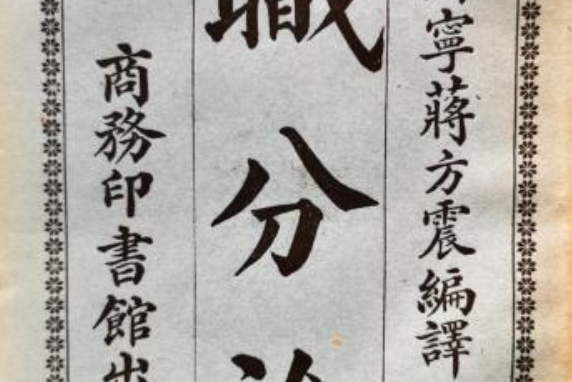 寧蔣方震編譯
職分
商務印書館出